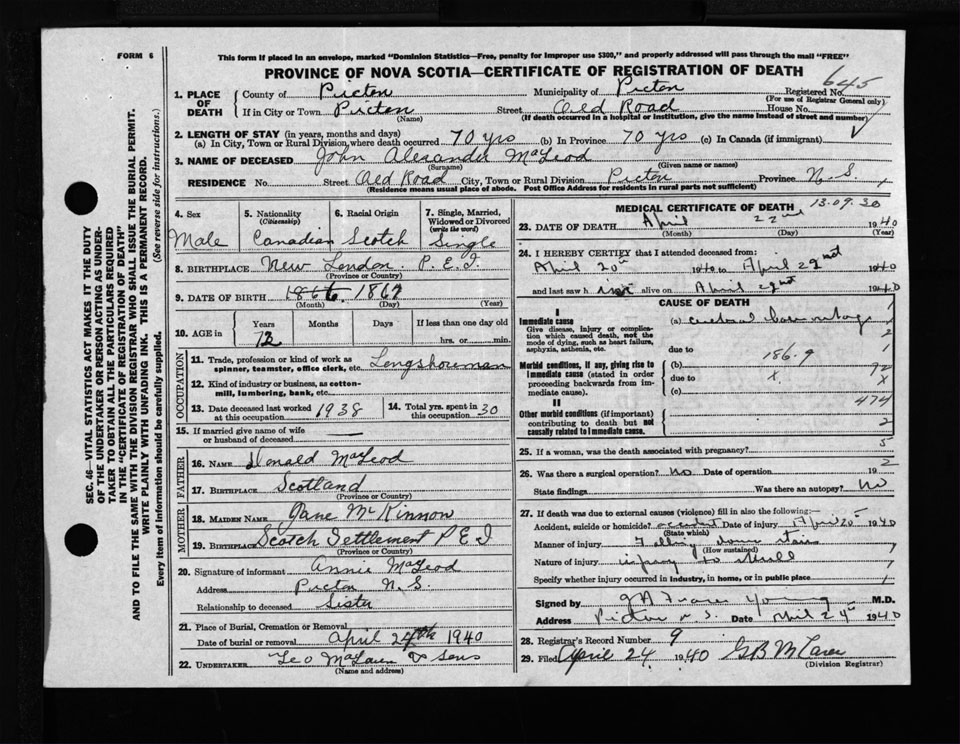 FORM 6
This form if placed in an envelope, marked "Dominion Statistics—Free, penalty for improper use $300," and properly addressed will pass through the mail "FREE"
PROVINCE OF NOVA SCOTIA—CERTIFICATE OF REGISTRATION OF DEATH
645
1. PLACE OF DEATH { County of Pictou Municipality of Pictou Registered No.
(For use of Registrar General only)
If in City or Town Pictou Street Old Road House No.
(Name) (If death occurred in a hospital or institution, give the name instead of street and number)
2. LENGTH OF STAY (in years, months and days)
(a) In City, Town or Rural Division, where death occurred 70 yrs (b) In Province 70 yrs (c) In Canada (if immigrant)
3. NAME OF DECEASED John Alexander MacLeod
(Surname) (Given name or names)
RESIDENCE No. Street Old Road City, Town or Rural Division Pictou Province N.S.
(Residence means usual place of abode. Post Office Address for residents in rural parts not sufficient)
4. Sex
Male
5. Nationality
(Citizenship)
Canadian
6. Racial Origin
Scotch
7. Single, Married, Widowed or Divorced
(write the word)
Single
8. BIRTHPLACE New London P.E.I.
(Province or Country)
9. DATE OF BIRTH 1866 1867
(Month) (Day) (Year)
10. AGE in Years Months Days If less than one day old
72 hrs. or min.
OCCUPATION
11. Trade, profession or kind of work as spinner, teamster, office clerk, etc. Longshoreman
12. Kind of industry or business, as cotton-mill, lumbering, bank, etc.
13. Date deceased last worked at this occupation 1938
14. Total yrs. spent in this occupation 30
15. If married give name of wife or husband of deceased —
FATHER
16. NAME Donald MacLeod
17. BIRTHPLACE Scotland
(Province or Country)
MOTHER
18. MAIDEN NAME Jane McKinnon
19. BIRTHPLACE Scotch Settlement P E I
(Province or Country)
20. Signature of informant Annie MacLeod
Address Pictou N.S.
Relationship to deceased Sister
21. Place of Burial, Cremation or Removal
Date of burial or removal April 24th 1940
22. UNDERTAKER Leo McLaren & Sons
(Name and address)
MEDICAL CERTIFICATE OF DEATH 13-09-30
23. DATE OF DEATH April 22nd 1940
(Month) (Day) (Year)
24. I HEREBY CERTIFY that I attended deceased from:
April 20th 1940 to April 22nd 1940
and last saw him alive on April 22nd 1940
CAUSE OF DEATH
I
Immediate cause (a) cerebral haemorrhage
Give disease, injury or complication which caused death, not the mode of dying, such as heart failure, asphyxia, asthenia, etc.
due to
186.9
Morbid conditions, if any, giving rise to immediate cause (stated in order proceeding backwards from immediate cause).
(b)
due to X
(c)
1
2
1
92
X
474
2
5
2
II
Other morbid conditions (if important) contributing to death but not causally related to immediate cause.
25. If a woman, was the death associated with pregnancy?
26. Was there a surgical operation? No Date of operation 19
State findings Was there an autopsy? No
27. If death was due to external causes (violence) fill in also the following:—
Accident, suicide or homicide? accident Date of injury April 20th 1940
(State which)
Manner of injury Falling down stairs
(How sustained)
Nature of injury injury to skull
Specify whether injury occurred in industry, in home, or in public place
Signed by Young M.D.
Address Pictou N.S. Date April 24th 1940
28. Registrar's Record Number 9
29. Filed April 24 1940
(Division Registrar)
SEC. 46—VITAL STATISTICS ACT MAKES IT THE DUTY OF THE UNDERTAKER OR PERSON ACTING AS UNDERTAKER TO OBTAIN ALL THE PARTICULARS REQUIRED IN THE "CERTIFICATE OF REGISTRATION OF DEATH"
AND TO FILE THE SAME WITH THE DIVISION REGISTRAR WHO SHALL ISSUE THE BURIAL PERMIT.
WRITE PLAINLY WITH UNFADING INK. THIS IS A PERMANENT RECORD.
Every item of information should be carefully supplied. (See reverse side for instructions.)